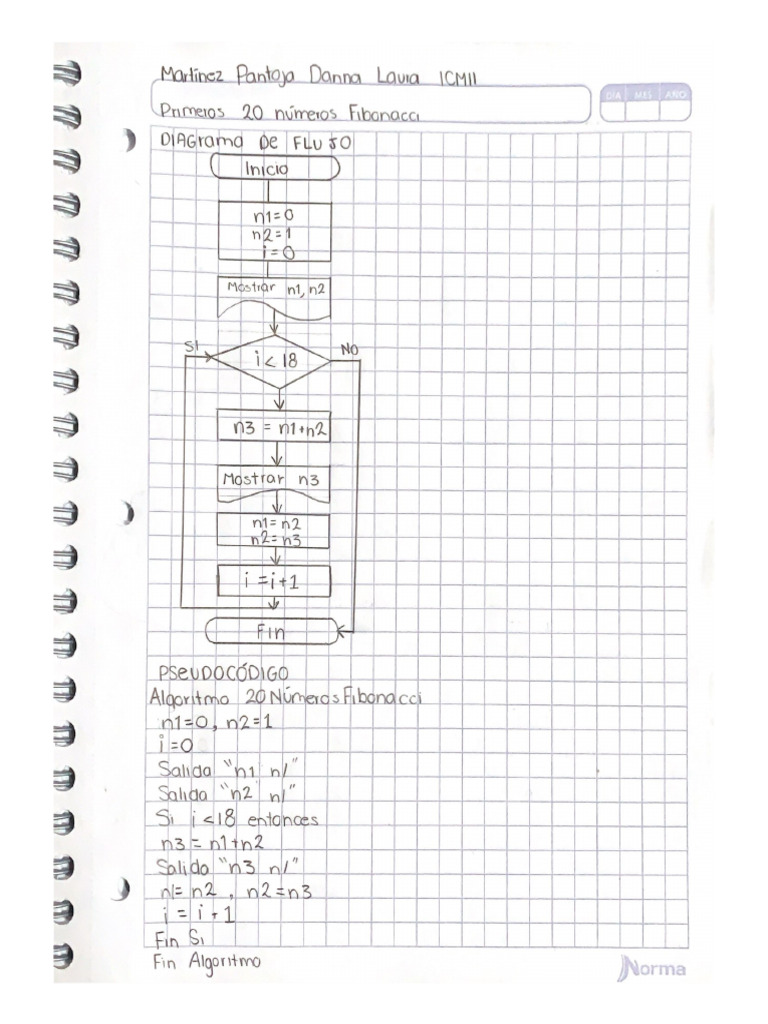 Martínez Pantoja Danna Laura 1CM11
DIA MES AÑO
Primeros 20 números Fibonacci
DIAGrama De FLUJO
Inicio
n1=0
n2=1
i=0
Mostrar n1, n2
SI
NO
i < 18
n3 = n1+n2
Mostrar n3
n1=n2
n2=n3
i = i+1
Fin
PSEUDOCÓDIGO
Algoritmo 20 Números Fibonacci
n1=0, n2=1
i=0
Salida "n1 n/"
Salida "n2 n/"
Si i <18 entonces
n3 = n1+n2
Salida "n3 n/"
n1= n2 , n2=n3
i = i + 1
Fin Si
Fin Algoritmo
Norma